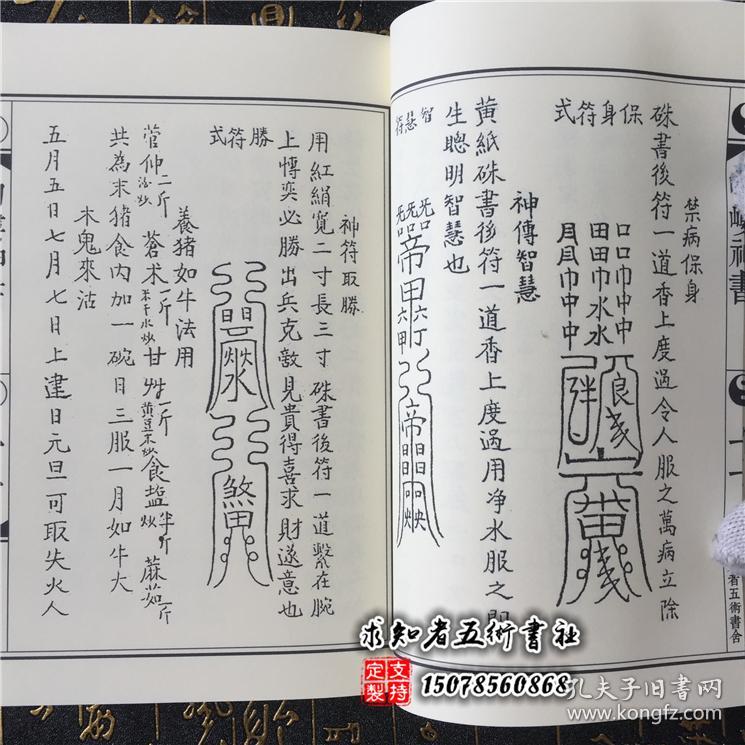 禁病保身
硃書後符一道香上度過令人服之萬病立除
保身符式
神傳智慧
黄紙硃書後符一道香上度過用净水服之即
生聰明智慧也
智慧符
神符取勝
用紅絹寬二寸長三寸硃書後符一道繫在腕
上慱奕必勝出兵克敵見貴得喜求財遂意也
勝符式
養猪如牛法用
管仲二斤 蒼术一斤 甘草一斤 食盐半斤
共為末猪食内加一碗日三服一月如牛大
木鬼來沾
五月五日七月七日上建日元旦可取失火人
神書
者五術書舍
求知者五術書社
支持定製
15078560868
孔夫子旧书网
www.kongfz.com